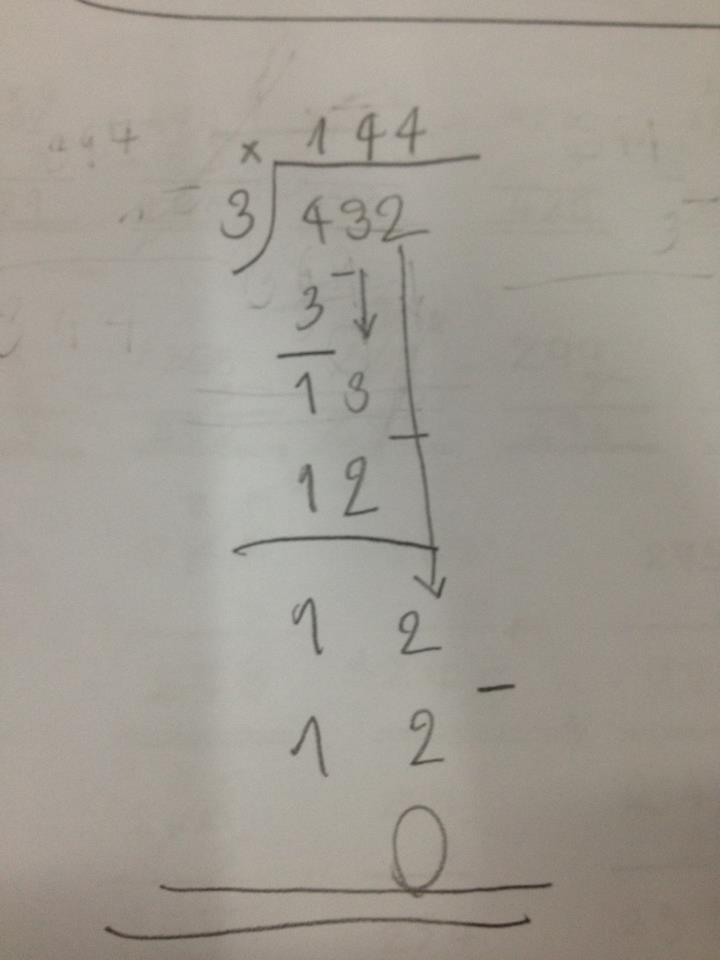 × 144
3) 432
3 -
13
12 -
12
12 -
0